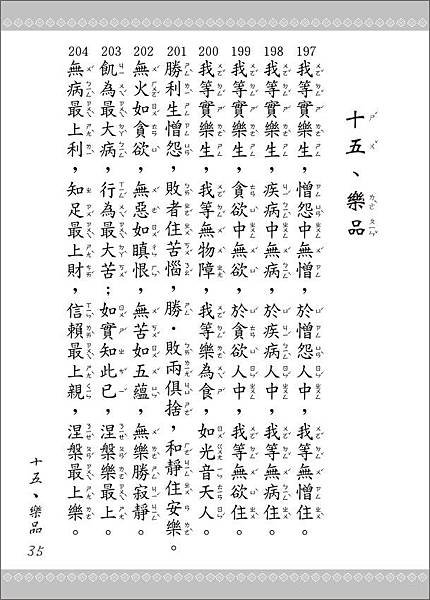 十五、樂品
197 我等實樂生，憎怨中無憎，於憎怨人中，我等無憎住。
198 我等實樂生，疾病中無病，於疾病人中，我等無病住。
199 我等實樂生，貪欲中無欲，於貪欲人中，我等無欲住。
200 我等實樂生，我等無物障，我等樂為食，如光音天人。
201 勝利生憎怨，敗者住苦惱，勝・敗兩俱捨，和靜住安樂。
202 無火如貪欲，無惡如瞋恨；無苦如五蘊，無樂勝寂靜。
203 飢為最大病，行為最大苦；如實知此已，涅槃樂最上。
204 無病最上利，知足最上財；信賴最上親，涅槃最上樂。
十五、樂品 35